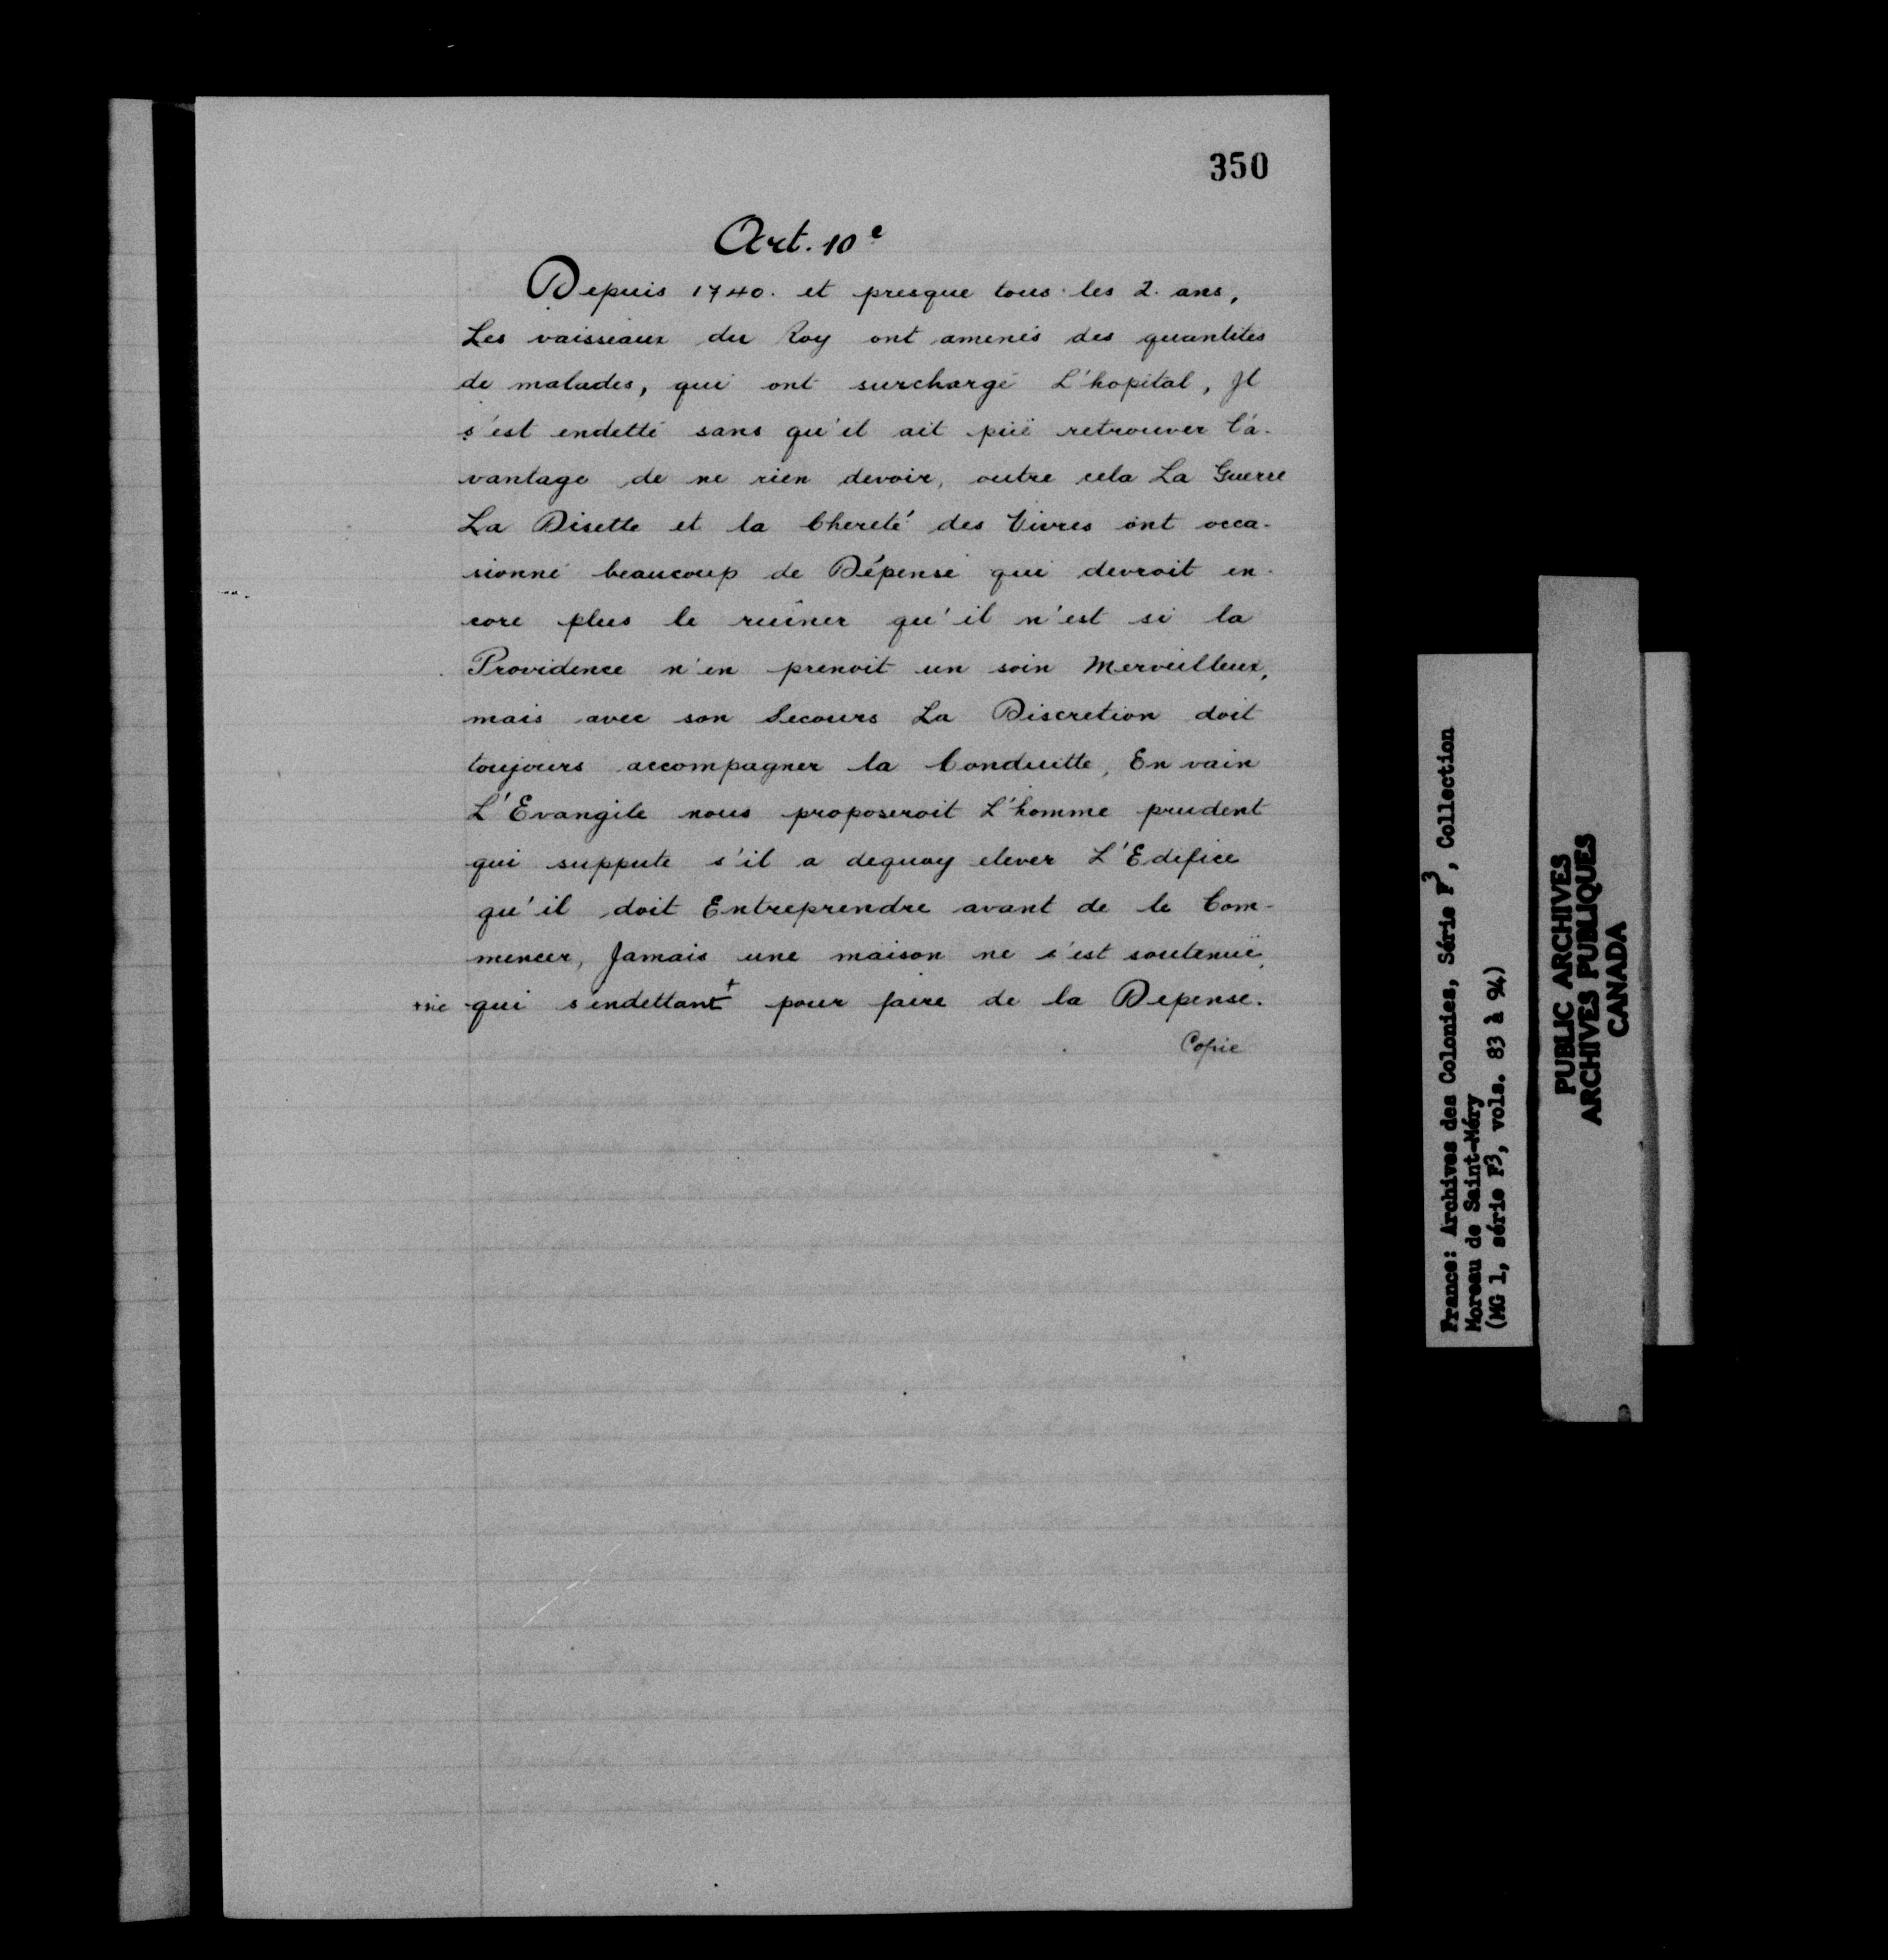 350
Art. 10e
Depuis 1740. et presque tous les 2. ans,
Les vaisseaux du Roy ont amenés des quantités
de malades, qui ont surchargé L'hopital, Jl
s'est endetté sans qu'il ait püe retrouver l'a-
vantage de ne rien devoir, outre cela La Guerre
La Disette et la Chereté des Vivres ont occa-
sionné beaucoup de Dépense qui devroit en-
core plus le ruiner qu'il n'est si la
Providence n'en prenoit un soin Merveilleux,
mais avec son Secours La Discretion doit
toujours accompagner la Conduitte, En vain
L'Evangile nous proposeroit L'homme prudent
qui suppute s'il a dequoy elever L'Edifice
qu'il doit Entreprendre avant de le Com-
mencer, Jamais une maison ne s'est soutenuë,
+sic qui s'endettant+ pour faire de la Depense.
Copie
France: Archives des Colonies, Série F3, Collection
Moreau de Saint-Méry
(MG 1, série F3, vols. 83 à 94)
PUBLIC ARCHIVES
ARCHIVES PUBLIQUES
CANADA